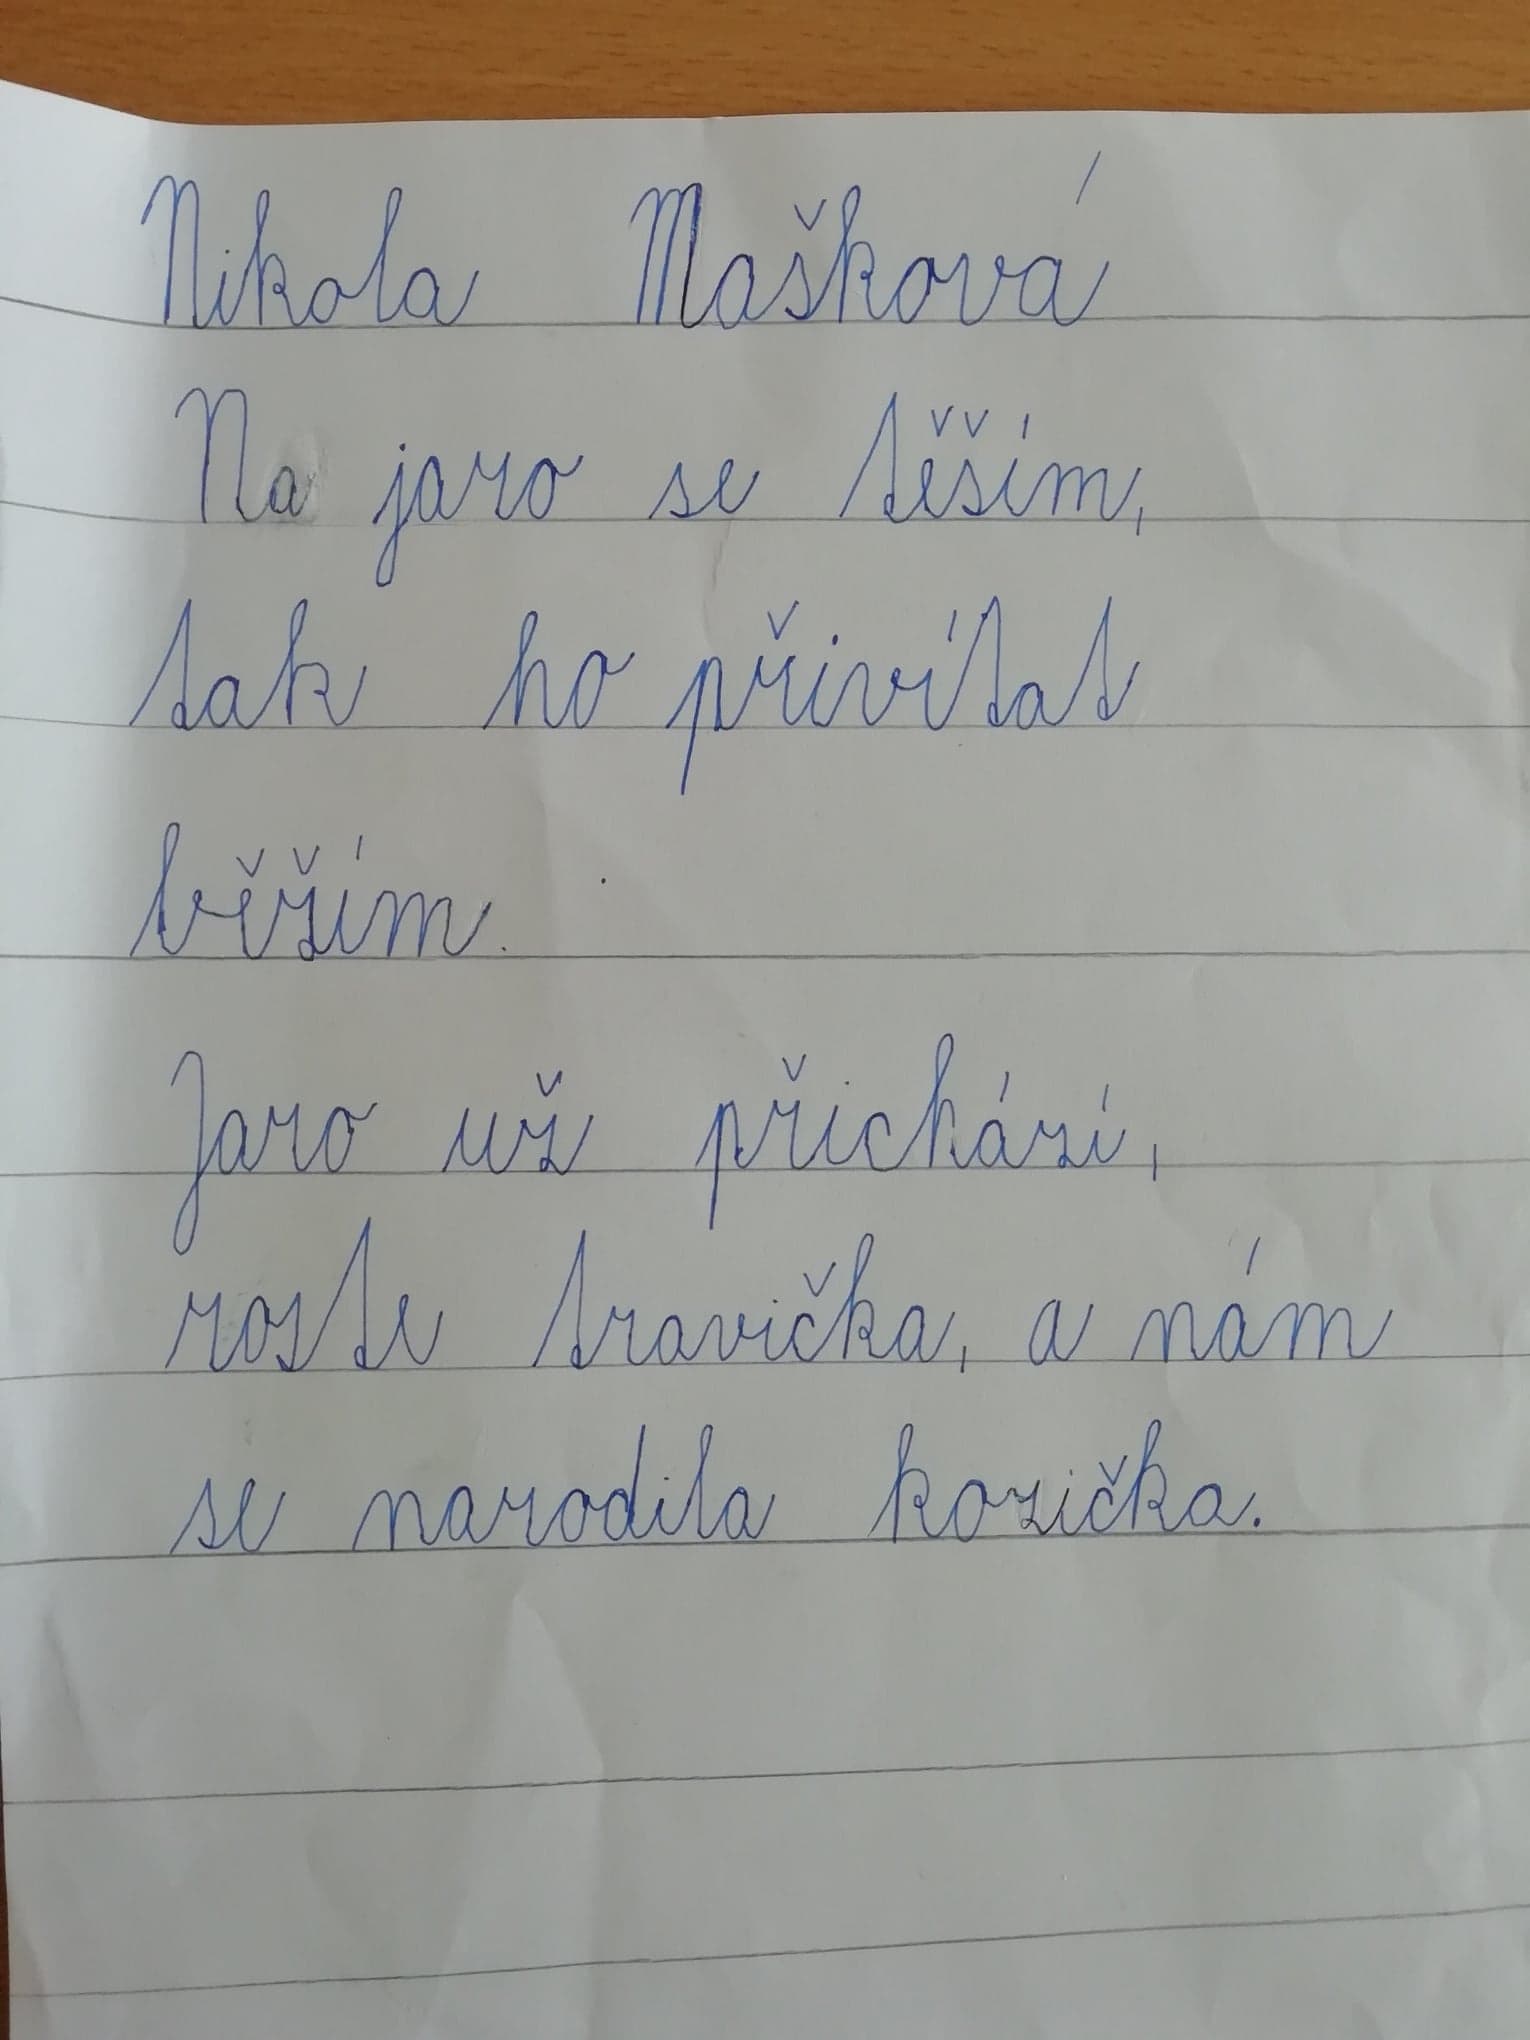 Nikola Mašková
Na jaro se těším,
tak ho přivítat
běžím.
Jaro už přichází,
roste travička, a nám
se narodila kozička.